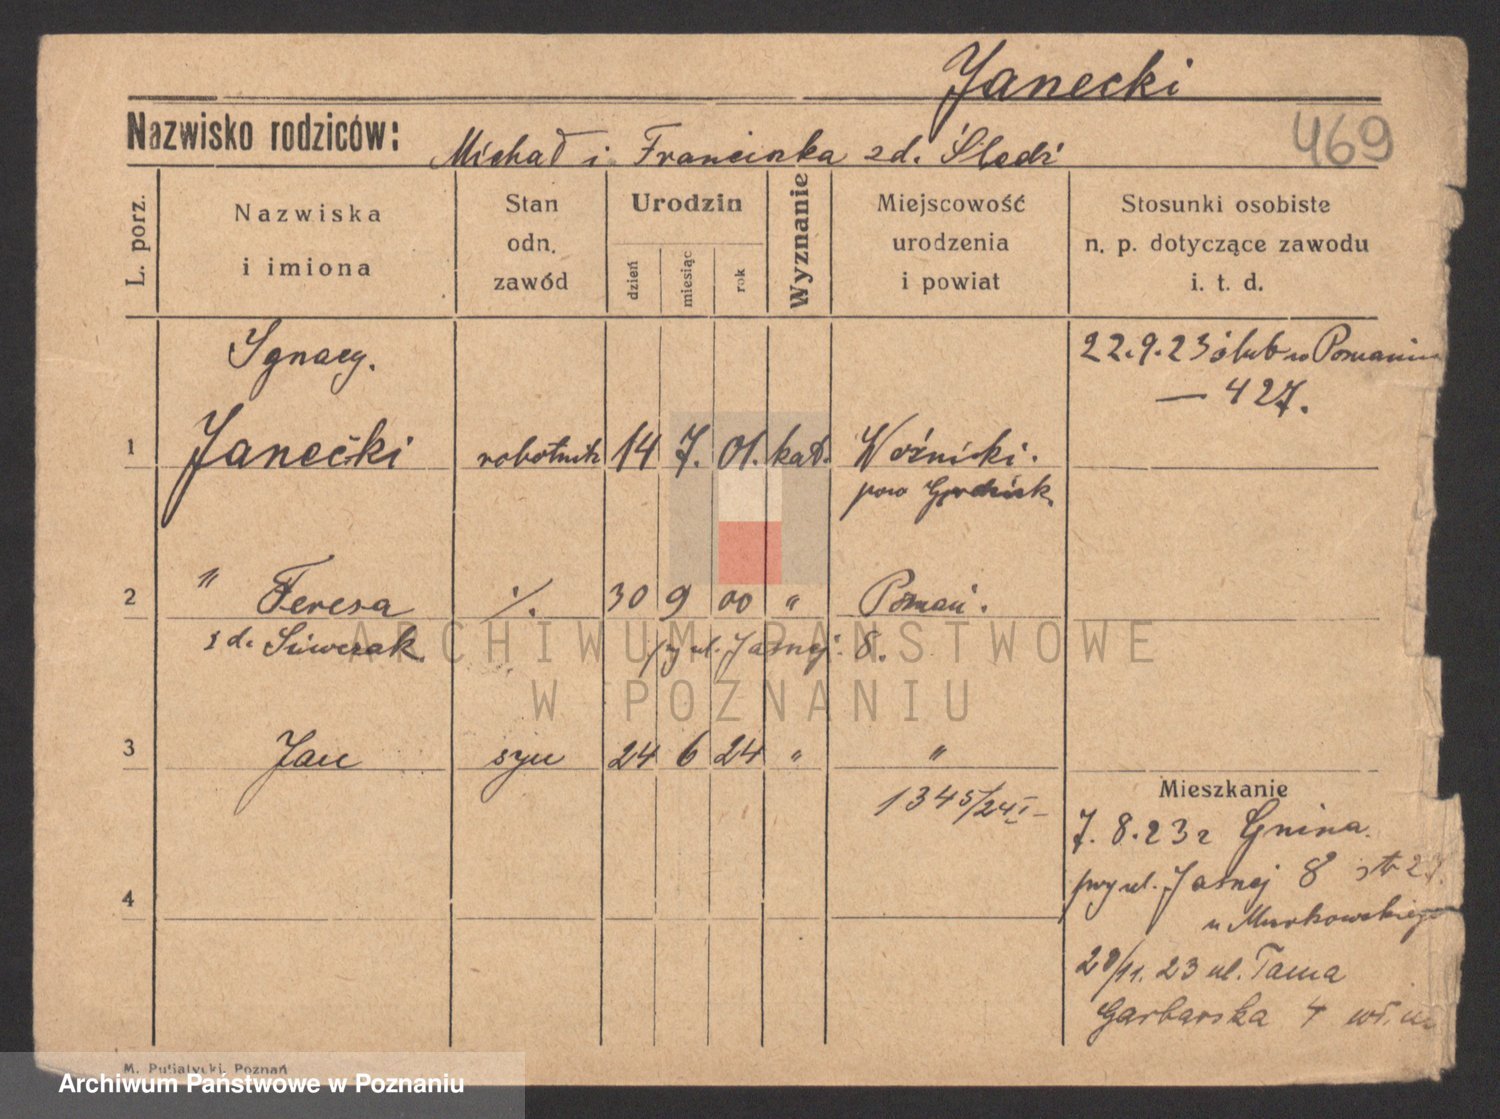 Janecki
469
Nazwisko rodziców: Michał i Franciszka zd. Śledź
L. porz.
Nazwiska i imiona
Stan odn. zawód
Urodzin
dzień
miesiąc
rok
Wyznanie
Miejscowość urodzenia i powiat
Stosunki osobiste n. p. dotyczące zawodu i. t. d.
Ignacy.
22.9.23 ślub w Poznaniu
— 427.
1 Janecki robotnik 14 7. 01. kat. Woźniki.
pow Grodzisk
2 " Teresa ·/. 30 9 00 " Poznań.
z d. Siwczak przy ul. Jasnej. 8.
3 Jan syn 24 6 24 " "
1345/24 I
Mieszkanie
7. 8. 23 z Gnina
przy ul. Jasnej 8
u Murkowskiego
4
28/11. 23 ul. Tama
Garbarska 4
M. Putiatycki, Poznań
ARCHIWUM PAŃSTWOWE
W POZNANIU
Archiwum Państwowe w Poznaniu